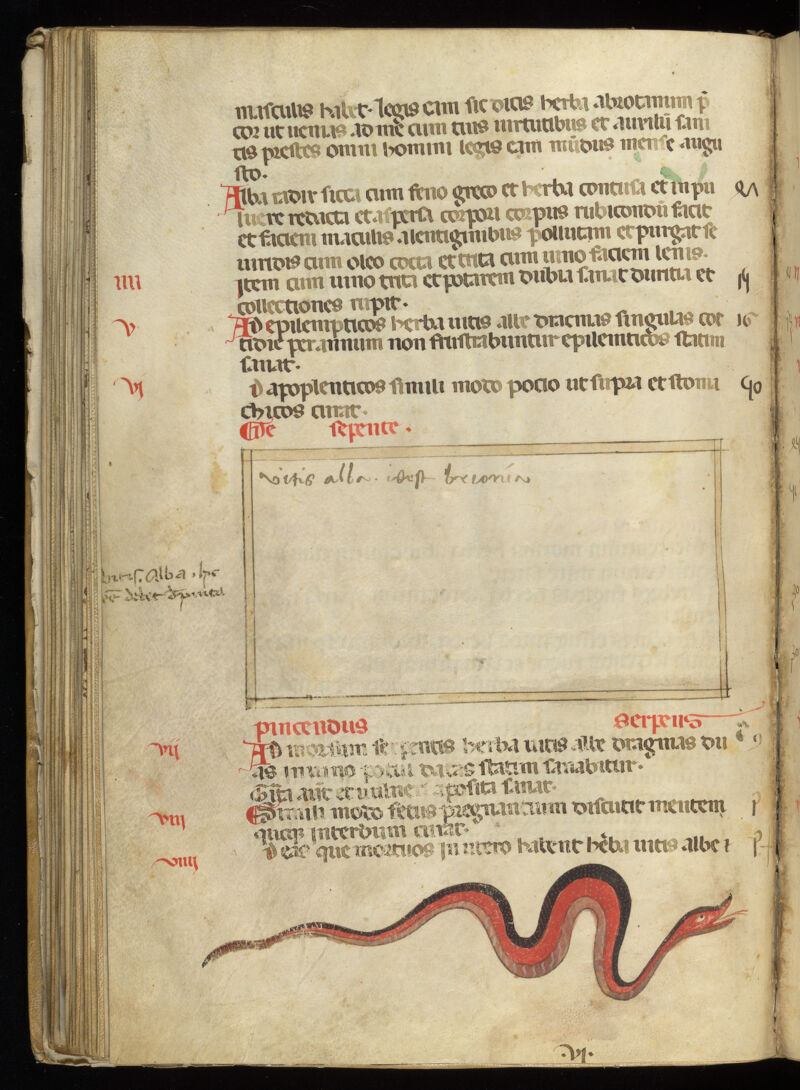 masculis habet. legis eam sic dicis herba abrotanum p̄
cor ut uenias ad me cum tuis uirtutibus et auxiliū sani
tis prestes omni homini legis eam mūdus mense augu
sto.
Alba radix sicca cum feno greco et herba contusa et in pu
luere redacta et aspersa corpori corpus rubicondū facit
et faciem maculis alentiginibus pollutam et purgat se
uiridis cum oleo cocta et trita cum uino faciem lenis.
IIII
Item cum uino trita et potarem dubia sanat duritia et
collectiones rupit.
V
AD epilempticos herba uitis albe dracmas singulas cot
tidie per annum non frustrabuntur epilemticos statim
sanat.
VI
D apoplenticos simili modo pocio ut supra et stoma
chicos curat.
De sepente.
vitis alba. idest brionia
uitis. Alba, hec
debet depinta
pingendus serpens
VII
AD morsum serpentis herba uitis albe dragmas du
as in uino potui datas statim sanabitur.
Cita aut et uulne aposita sanat.
VIII
Simili modo fetus pregnancium discutit mentem
quoq; interdum curat.
VIIII
D eas que mortuos in utero habent hēba uitis albe
.VI.